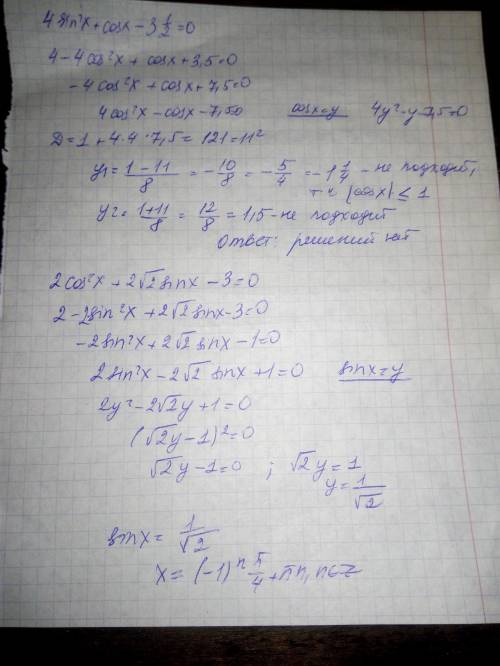 4 sin²x + cosx - 3 1/2 = 0
4 - 4cos²x + cosx + 3,5 = 0
-4cos²x + cosx + 7,5 = 0
4cos²x - cosx - 7,5=0 cosx = y 4y² - y - 7,5 = 0
D = 1 + 4·4·7,5 = 121 = 11²
y₁ = (1 - 11)/8 = -10/8 = -5/4 = -1 1/4 - не подходит,
т к |cosx| ≤ 1
y₂ = (1+11)/8 = 12/8 = 1,5 - не подходит
Ответ: решений нет
2cos²x + 2√2 sinx - 3 = 0
2 - 2sin²x + 2√2 sinx - 3 = 0
-2sin²x + 2√2 sinx - 1 = 0
2sin²x - 2√2 sinx + 1 = 0 sinx = y
2y² - 2√2y + 1 = 0
(√2y - 1)² = 0
√2y - 1 = 0 ; √2y = 1
y = 1/√2
sinx = 1/√2
x = (-1)ⁿ π/4 + πn, n∈Z